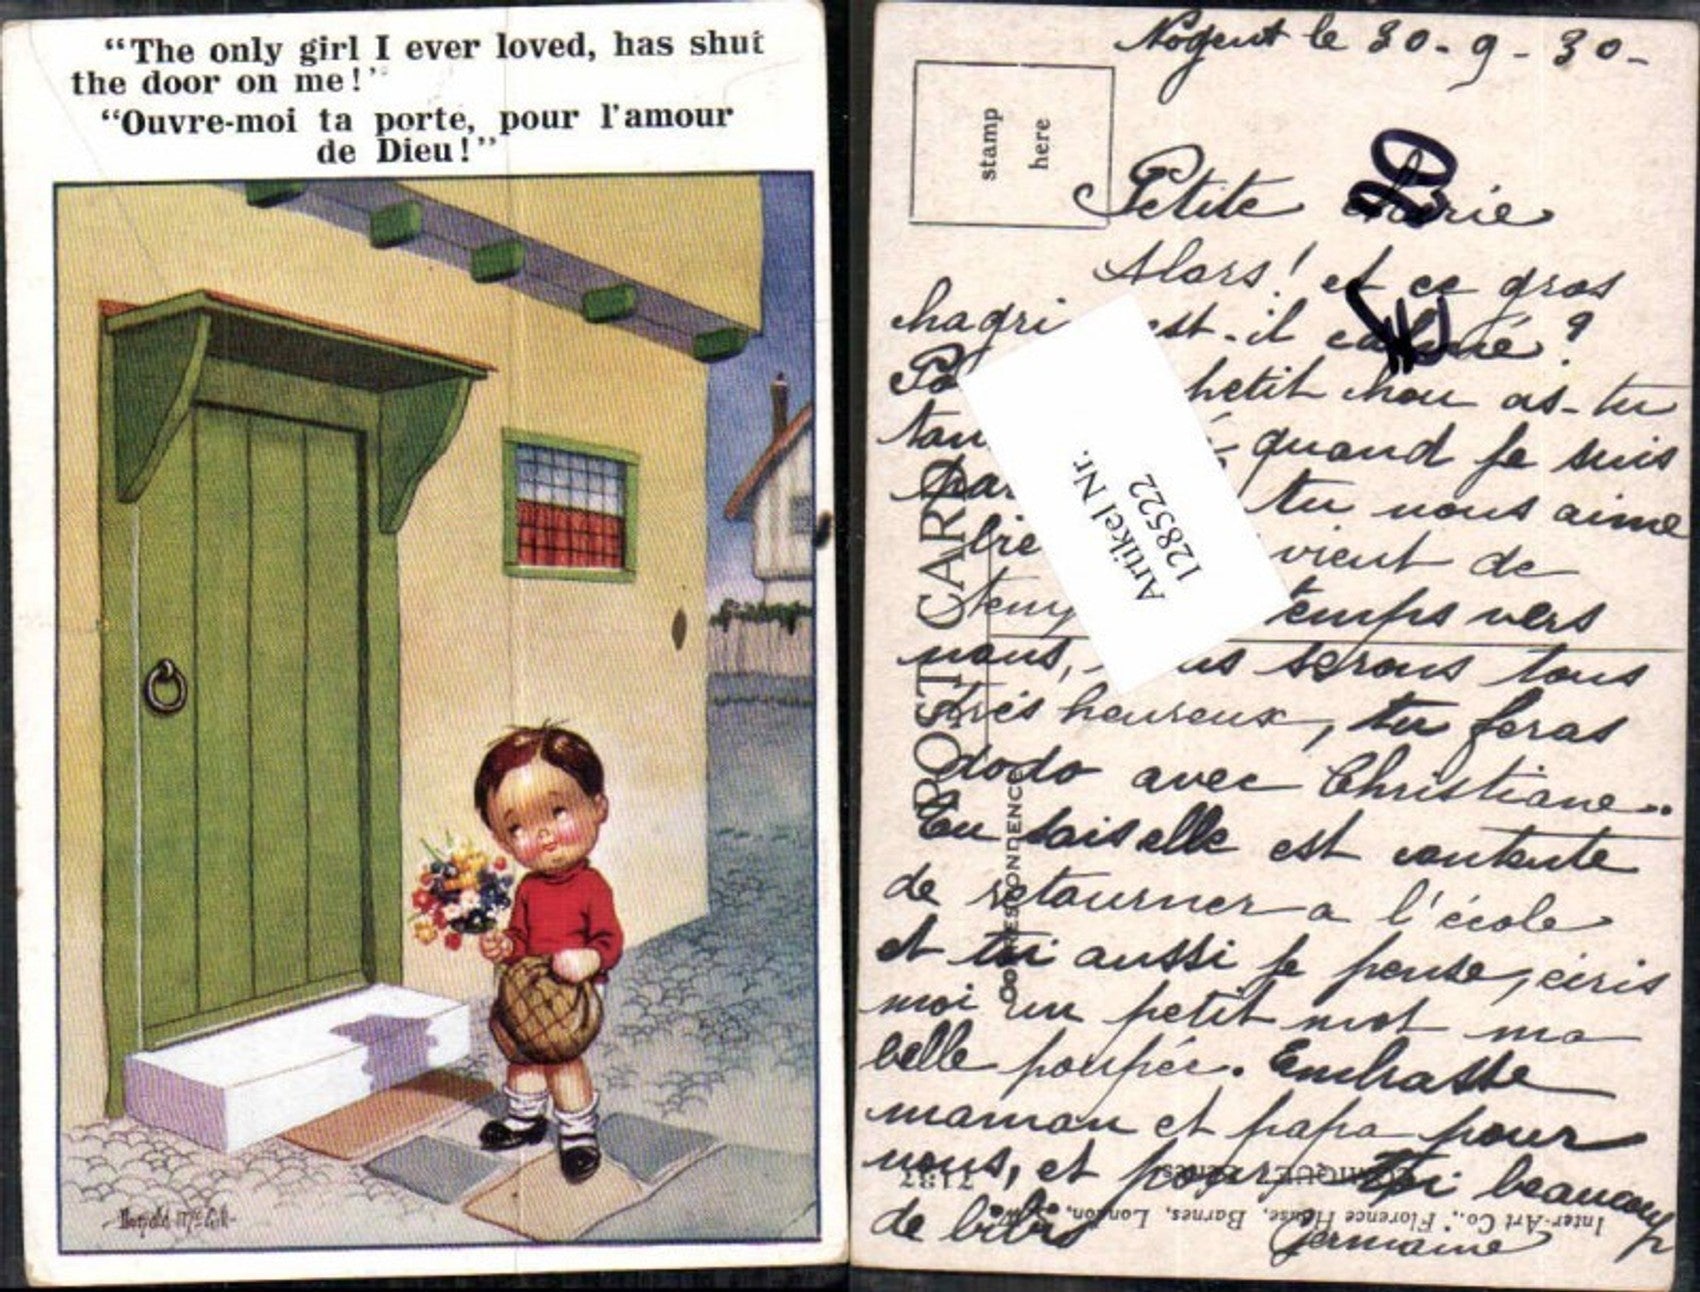 “The only girl I ever loved, has shut
the door on me!”
“Ouvre-moi ta porte, pour l'amour
de Dieu!”
Donald McGill
Nogent le 30-9-30-
stamp
here
20
Petite
Alors! et ce gros
hagri est-il calmé?
petit chou as-tu
quand je suis
tu nous aime
vient de
temps vers
nous, serons tous
très heureux, tu feras
dodo avec Christiane..
Tu sais elle est contente
de retourner a l'école
et toi aussi je pense, ecris
moi un petit mot ma
belle poupée. Embrasse
maman et papa pour
nous, et pour toi beaucoup
de bibis Germaine
POST CARD
CORRESPONDENCE
Artikel Nr.
128522
Inter-Art Co., Florence House, Barnes, London,